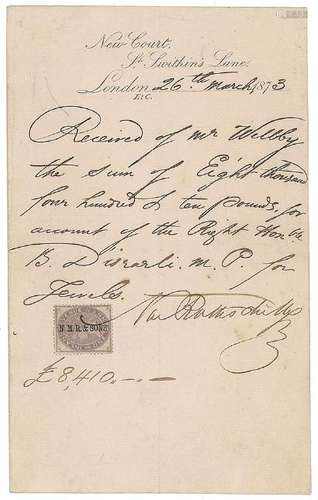 New Court,
St. Swithin's Lane.
London 26th March 1873
E.C.
Received of Mr Wellby
the sum of Eight thousand
four hundred & ten pounds, for
account of the Right Honble
B. Disraeli M.P. for
Jewels.
N.M.R. & SONS
£8,410.-.-